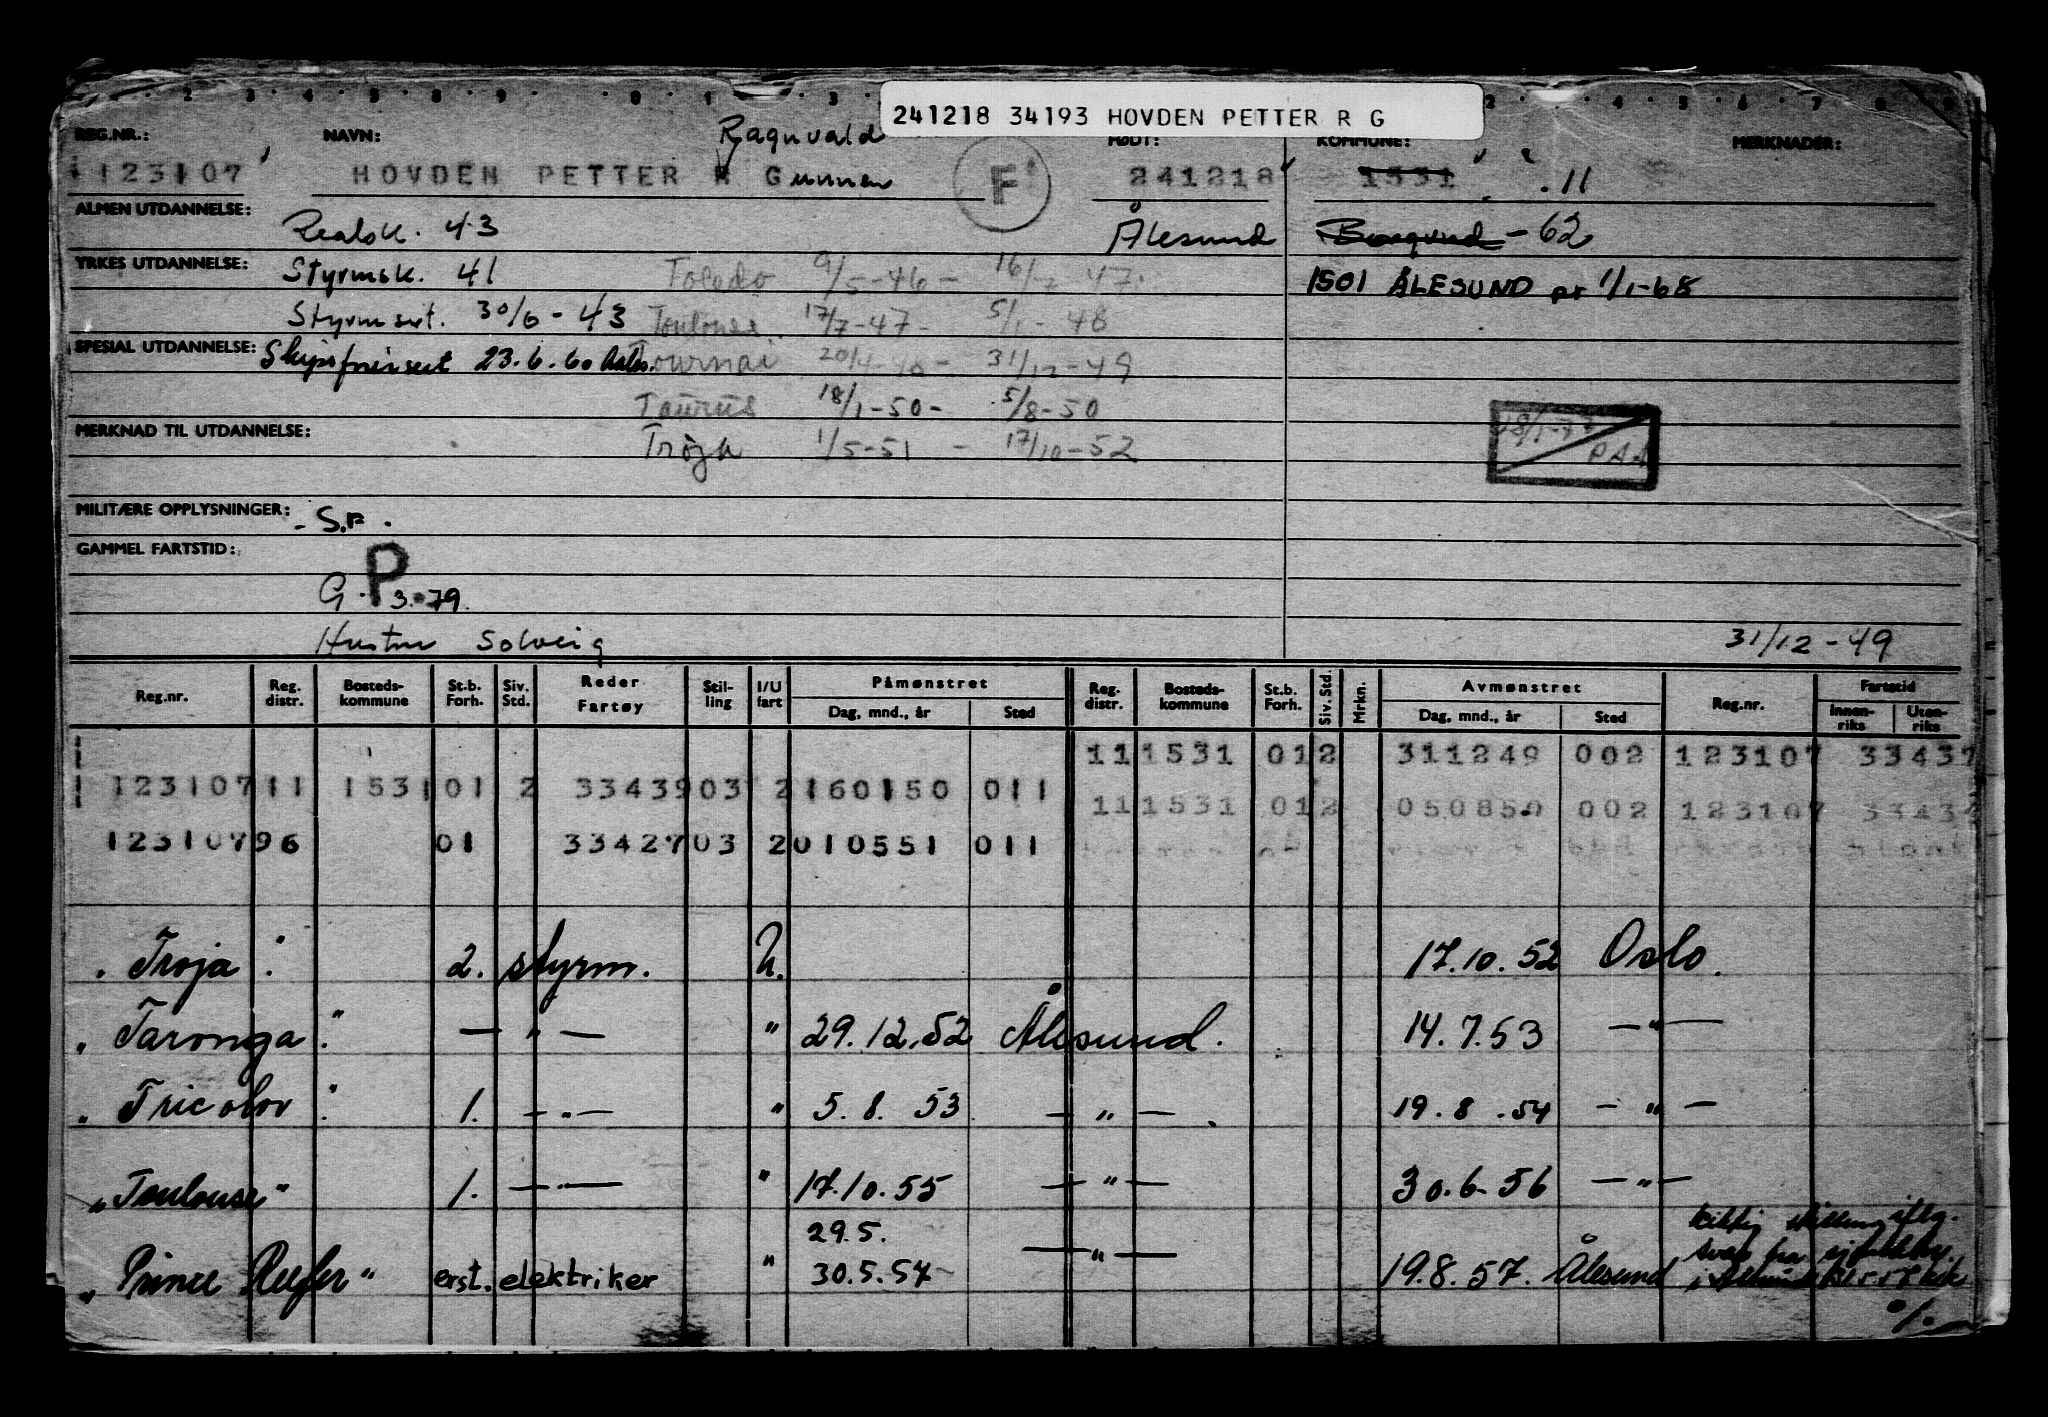 241218 34193 HOVDEN PETTER R G
REG.NR.: NAVN: Ragnvald FØDT: KOMMUNE: MERKNADER:
123107 HOVDEN PETTER R Gunnar F 241218 1531 . 11
ALMEN UTDANNELSE: Realsk. 43 Ålesund Borgund - 62
YRKES UTDANNELSE: Styrmsk. 41 Toledo 9/5-46 - 16/7 47. 1501 ÅLESUND pr 1/1-68
Styrmsert. 30/6 - 43 Toulouse 17/7-47 - 5/1 - 48
SPESIAL UTDANNELSE: Skipsførersert 23.6.60 Aales. Tournai - 31/12-49
Taurus 18/1-50- 5/8-50
MERKNAD TIL UTDANNELSE: Troja 1/5-51 - 17/10-52 PAA
MILITÆRE OPPLYSNINGER: - S.F.
GAMMEL FARTSTID:
G. P 3.79.
Hustru Solveig 31/12-49
Reg.nr. Reg. distr. Bosteds-kommune St.b. Forh. Siv. Std. Reder Fartøy Stil-ling I/U fart Påmønstret Dag, mnd., år Sted Reg. distr. Bosteds-kommune St.b. Forh. Siv. Std. Mrkn. Avmønstret Dag, mnd., år Sted Reg.nr. Fartstid Innen-riks Uten-riks
11 1531 01 2 311249 002 123107 33437
123107 11 1531 01 2 33439 03 2 160150 011
11 1531 01 2 050850 002 123107
123107 96 01 33427 03 2 010551 011
" Troja " 2. styrm. U. 17.10.52 Oslo.
" Taronga " — " — " 29.12.52 Ålesund. 14.7.53 — " —
" Tricolor " 1. — " — " 5. 8. 53 — " — 19. 8. 54 — " —
" Toulouse " 1. — " — " 17.10.55 — " — 30.6.56 — " —
29.5.
" Prince Reefer " erst. elektriker " 30.5.57 — " — 19.8.57. Ålesund